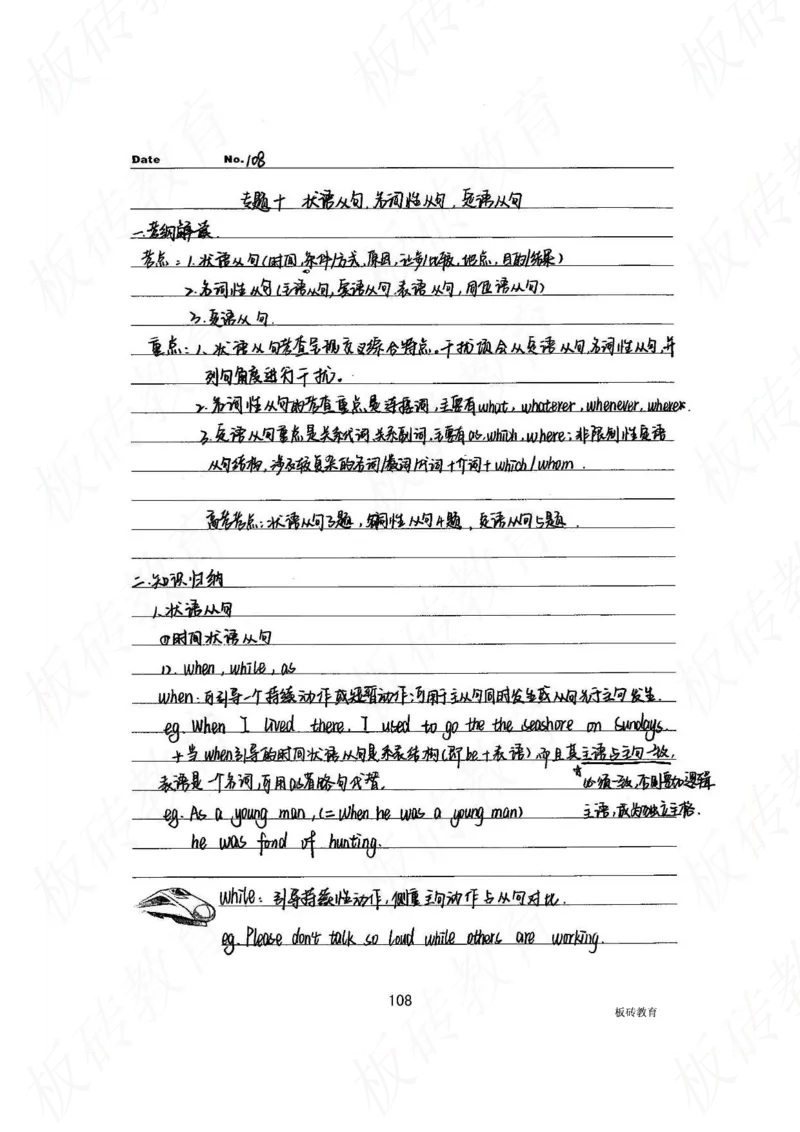 Date No. 108
专题十 状语从句,名词性从句,定语从句
一.考纲解读
考点:1.状语从句(时间,条件/方式,原因,让步/比较,地点,目的/结果)
2.名词性从句(主语从句,宾语从句,表语从句,同位语从句)
3.定语从句.
重点:1.状语从句考查呈现交叉综合特点。干扰项会从定语从句,名词性从句,并
列句角度进行干扰。
2.名词性从句的考查重点是连接词,主要有what, whatever, whenever, where*.
3.定语从句重点是关系代词,关系副词,主要有as, which, where;非限制性定语
从句结构,涉及较复杂的名词/数词/代词+介词+which/whom.
高考考点:状语从句3题,名词性从句4题,定语从句5题.
二.知识归纳
1.状语从句
①时间状语从句
1). when, while, as
when:可引导一个持续动作或短暂动作;可用于主从句同时发生或从句先于主句发生.
eg. When I lived there, I used to go the the seashore on Sundays.
+当when引导的时间状语从句是系表结构(即be+表语)而且其主语与主句一致,
表语是一个名词,可用as省略句代替.
*必须一致,否则要加逻辑
eg. As a young man, (= When he was a young man)
主语,或为独立主格.
he was fond of hunting.
while:引导持续性动作,侧重主句动作与从句对比.
eg. Please don't talk so loud while others are working.
108
板砖教育